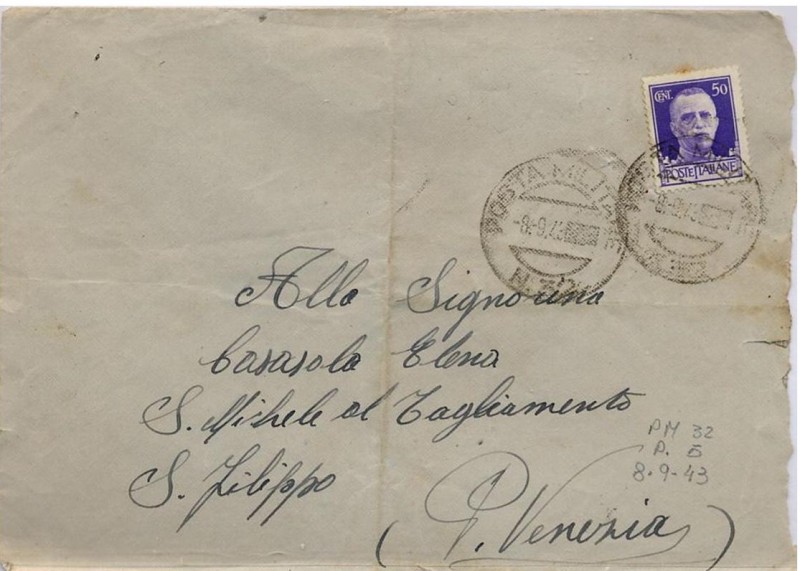 CENT. 50
POSTE ITALIANE
POSTA MILITARE
-8.-9.43
-8.-9.43
Alla Signorina
Casasola Elena
S. Michele al Tagliamento
S. Filippo
(P. Venezia)
PM 32
P. 5
8-9-43